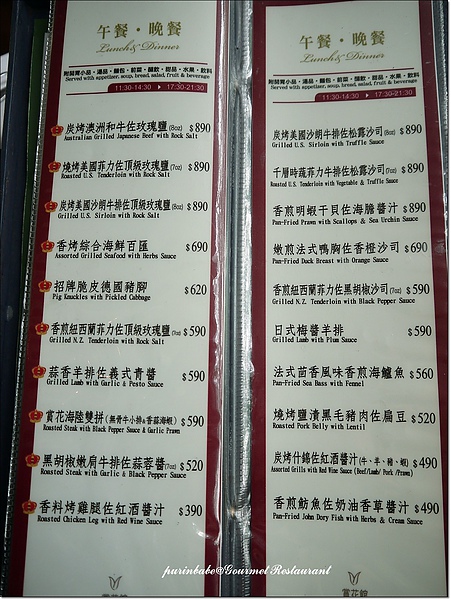 午餐·晚餐
Lunch & Dinner
附開胃小品·湯品·麵包·前菜·麵飲·甜品·水果·飲料
Served with appetizer, soup, bread, salad, fruit & beverage
11:30-14:30 ▸ 17:30-21:30
炭烤澳洲和牛佐玫瑰鹽(8oz) $890
Australian Grilled Japanese Beef with Rock Salt
燒烤美國菲力佐頂級玫瑰鹽(7oz) $890
Roasted U.S. Tenderloin with Rock Salt
炭烤美國沙朗牛排佐頂級玫瑰鹽(8oz) $890
Grilled U.S. Sirloin with Rock Salt
香烤綜合海鮮百匯 $690
Assorted Grilled Seafood with Herbs Sauce
招牌脆皮德國豬腳 $620
Pig Knuckles with Pickled Cabbage
香煎紐西蘭菲力佐頂級玫瑰鹽(7oz) $590
Grilled N.Z. Tenderloin with Rock Salt
蒜香羊排佐義式青醬 $590
Grilled Lamb with Garlic & Pesto Sauce
賞花海陸雙拼(無骨牛小排&香蒜海蝦) $590
Roasted Steak with Black Pepper Sauce & Garlic Prawn
黑胡椒嫩肩牛排佐蒜蓉醬(7oz) $520
Roasted Steak with Garlic & Black Pepper Sauce
香料烤雞腿佐紅酒醬汁 $390
Roasted Chicken Leg with Red Wine Sauce
午餐·晚餐
Lunch & Dinner
附開胃小品·湯品·麵包·前菜·麵飲·甜品·水果·飲料
Served with appetizer, soup, bread, salad, fruit & beverage
11:30-14:30 ▸ 17:30-21:30
炭烤美國沙朗牛排佐松露沙司(8oz) $890
Grilled U.S. Sirloin with Truffle Sauce
千層時蔬菲力牛排佐松露沙司(7oz) $890
Roasted U.S. Tenderloin with Vegetable & Truffle Sauce
香煎明蝦干貝佐海膽醬汁 $890
Pan-Fried Prawn with Scallops & Sea Urchin Sauce
嫩煎法式鴨胸佐香橙沙司 $690
Pan-Fried Duck Breast with Orange Sauce
香煎紐西蘭菲力佐黑胡椒沙司(7oz) $590
Grilled N.Z. Tenderloin with Black Pepper Sauce
日式梅醬羊排 $590
Grilled Lamb with Plum Sauce
法式茴香風味香煎海鱸魚 $560
Pan-Fried Sea Bass with Fennel
燒烤鹽漬黑毛豬肉佐扁豆 $520
Roasted Pork Belly with Lentil
炭烤什錦佐紅酒醬汁(牛、羊、豬、蝦) $490
Assorted Grills with Red Wine Sauce (Beef/Lamb/ Pork /Prawn)
香煎魴魚佐奶油香草醬汁 $490
Pan-Fried John Dory Fish with Herbs & Cream Sauce
purinbabe@Gourmet Restaurant